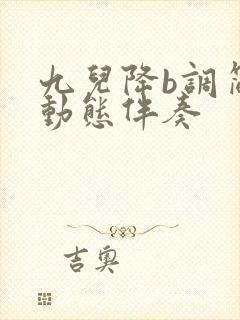 九兒降b調
動態伴奏
吉奧